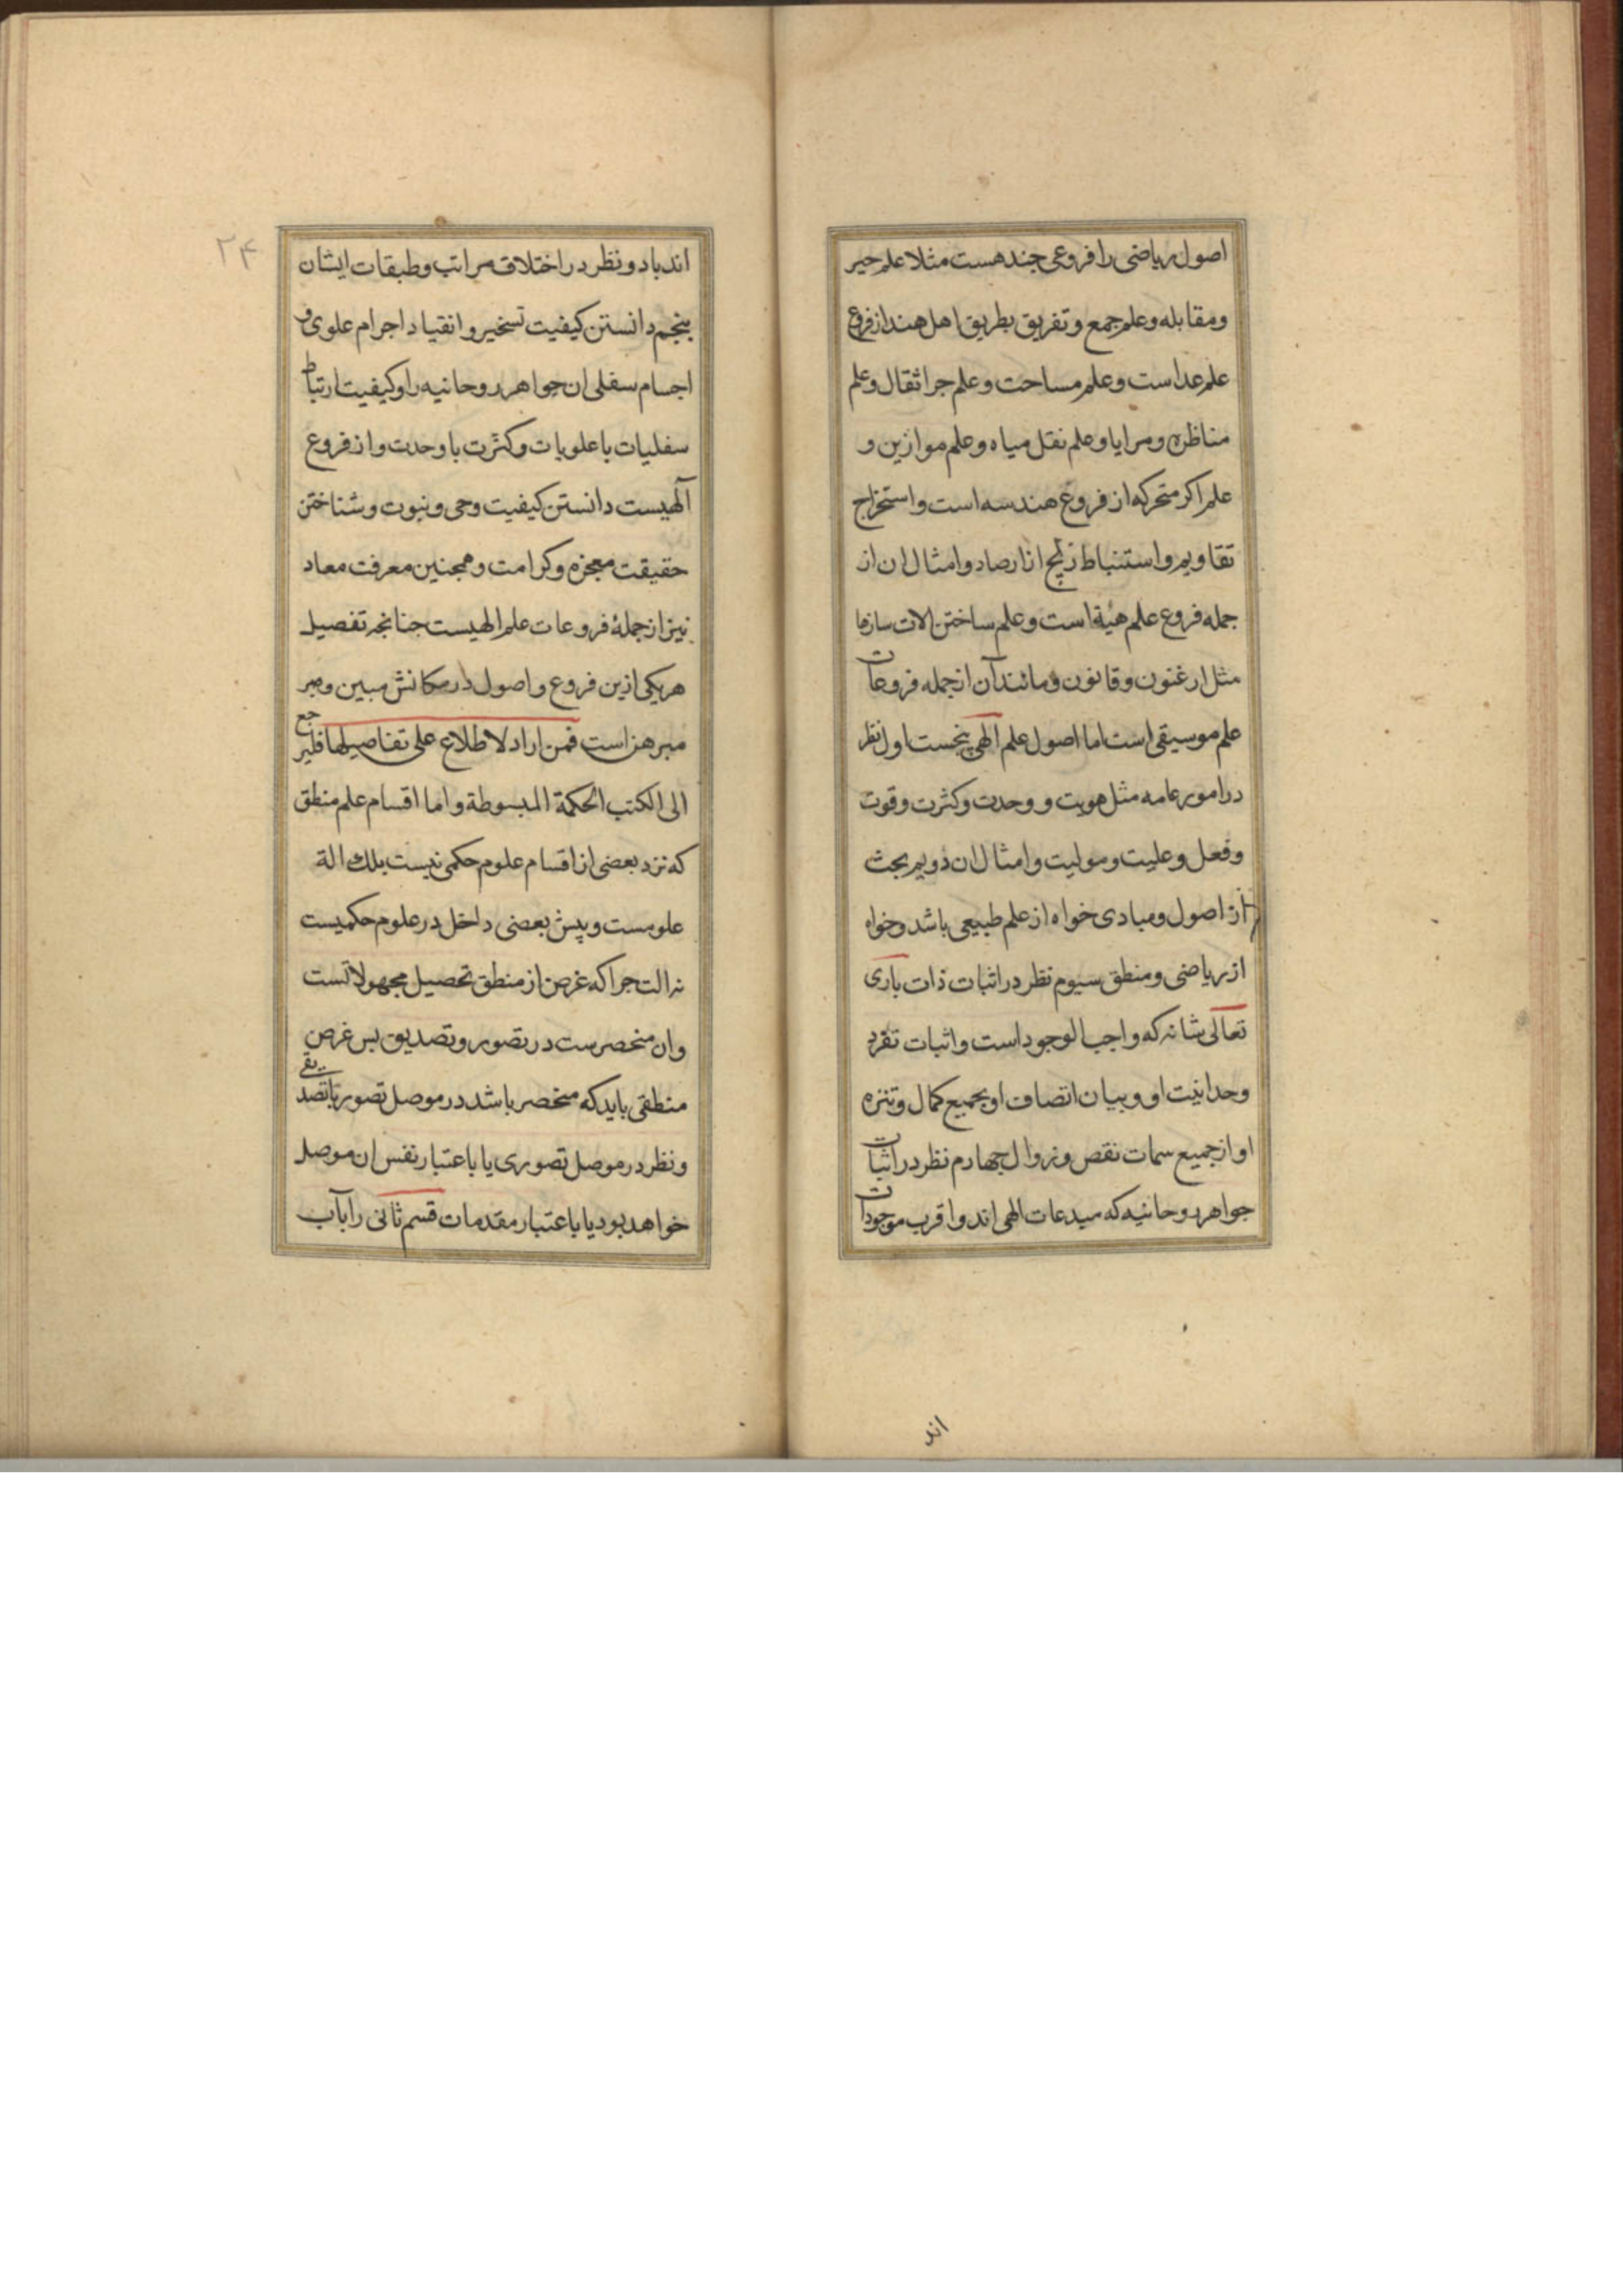 اصول ریاضی را فروعی جند هست مثلا علم حیر
ومقابله وعلم جمع وتفریق بطریق اهل هند از فروع
علم عداست وعلم مساحت وعلم جراثقال وعلم
مناظره ومرایا وعلم نقل میاه وعلم موازین و
علم اکر متحرکه از فروع هندسه است واستخراج
تقاویم واستنباط زیج از ارصاد وامثال ان از
جمله فروع علم هیئة است وعلم ساختن الات سازها
مثل ارغنون وقانون ومانند آن از جمله فروعات
علم موسیقی است اما اصول علم الهی پنجست اول نظر
در امور عامه مثل هویت و وحدت وکثرت وقوت
وفعل وعلیت ومولیت وامثال ان دویم بحث
از اصول ومبادی خواه از علم طبیعی باشد وخواه
از ریاضی ومنطق سیوم نظر در اثبات ذات باری
تعالی شانه که واجب الوجود است واثبات تفرد
وحدانیت او وبیان اتصاف او بجمیع کمال وتنزه
او از جمیع سمات نقص وزوال جهارم نظر در اثبات
جواهر روحانیه که مبدعات الهی اند واقرب موجودات
اند
۲۴
اند باد ونظر در اختلاف مراتب وطبقات ایشان
پنجم دانستن کیفیت تسخیر وانقیاد اجرام علوی و
اجسام سفلی ان جواهر روحانیه را وکیفیت ارتباط
سفلیات با علویات وکثرت با وحدت واز فروع
آلهیست دانستن کیفیت وحی ونبوت وشناختن
حقیقت معجزه وکرامت وهمجنین معرفت معاد
نیز از جملهٔ فروعات علم الهیست جنانجه تفصیل
هر یکی ازین فروع واصول در مکانش مبین ومبر
مبرهن است فمن اراد لاطلاع علی تفاصیلها فلیرجع
الی الکتب الحکمة المبسوطة واما اقسام علم منطق
که نزد بعضی از اقسام علوم حکمی نیست بلك الة
علومست وپیش بعضی داخل در علوم حکمیست
نه الت جرا که غرض از منطق تحصیل مجهولاتست
وان منحصرست در تصور وتصدیق بس غرض
منطقی باید که منحصر باشد در موصل تصور یا تصدیقی
ونظر در موصل تصوری یا باعتبار نفس ان موصل
خواهد بود یا باعتبار مقدمات قسم ثانی را باب